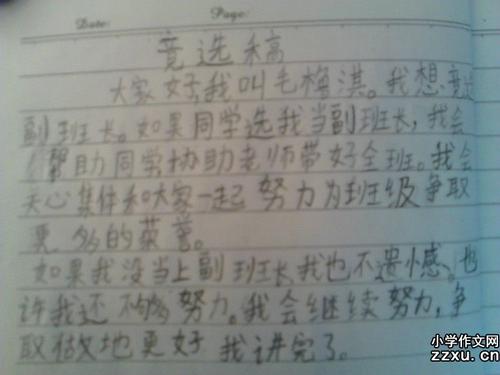 Date:
Page:
竞选稿
大家好,我叫毛梅淇。我想竞选
副班长。如果同学选我当副班长,我会
帮助同学协助老师带好全班。我会
关心集体和大家一起努力为班级争取
更多的荣誉。
如果我没当上副班长,我也不遗憾。也
许我还不够努力。我会继续努力,争
取做地更好 我讲完了。
小学作文网
zzxu.cn